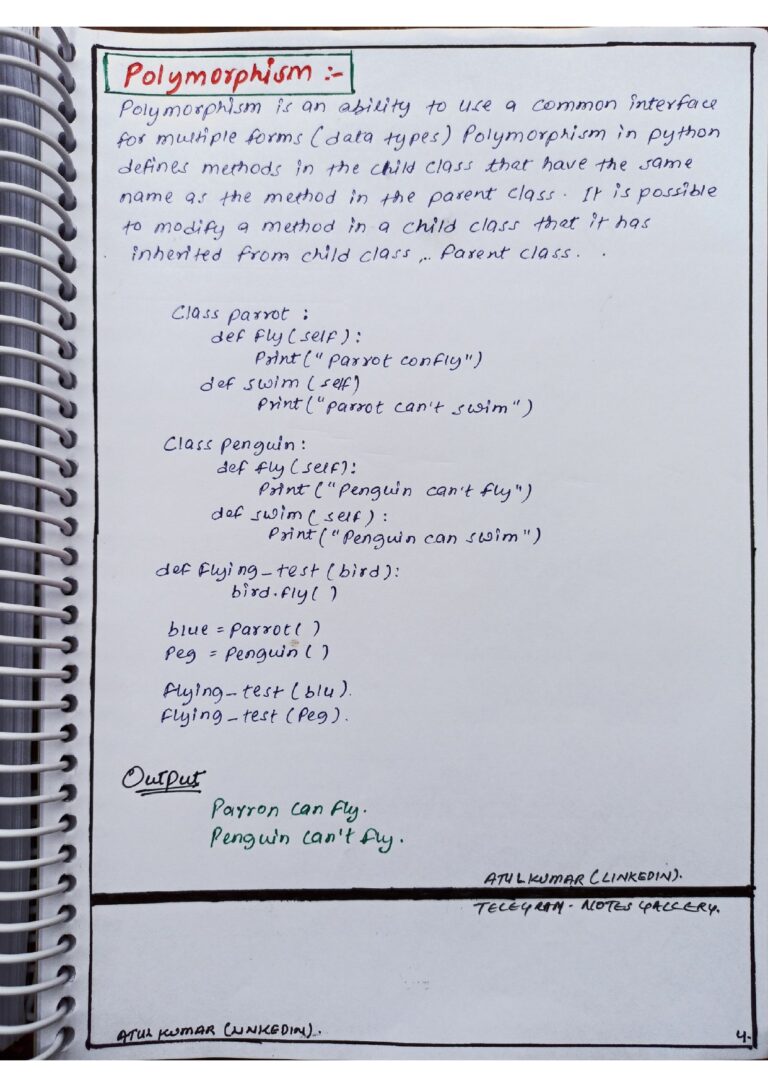 Polymorphism :-
Polymorphism is an ability to use a common interface
for multiple forms (data types) Polymorphism in python
defines methods in the child class that have the same
name as the method in the parent class. It is possible
to modify a method in a child class that it has
inherited from child class ,.. Parent class.
Class parrot :
def fly(self):
Print("Parrot confly")
def swim (self)
Print("Parrot can't swim")
Class Penguin:
def fly(self):
Print ("Penguin can't fly")
def swim( self):
Print("Penguin can swim")
def flying_test (bird):
bird.fly( )
blue = Parrot( )
Peg = Penguin( )
flying_test (blu).
flying_test (Peg).
Output
Parron can fly.
Penguin can't fly.
ATUL KUMAR (LINKEDIN).
TELEGRAM - NOTES GALLERY.
ATUL KUMAR (LINKEDIN).
4.